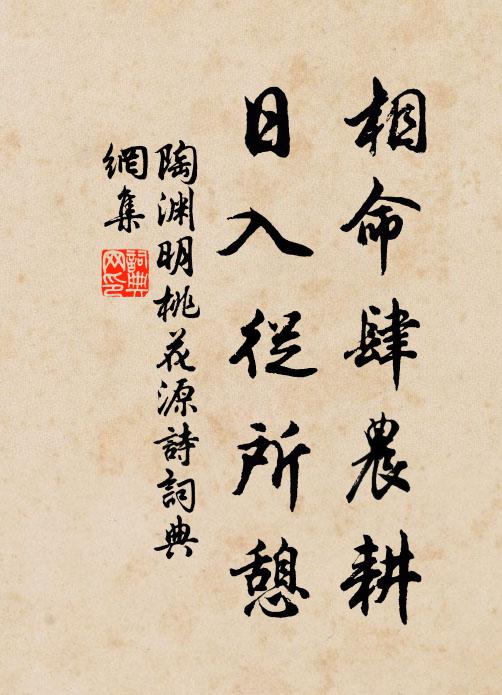 相命肆農耕
日入從所憩
陶淵明桃花源詩詞典
網集
詞典
网印